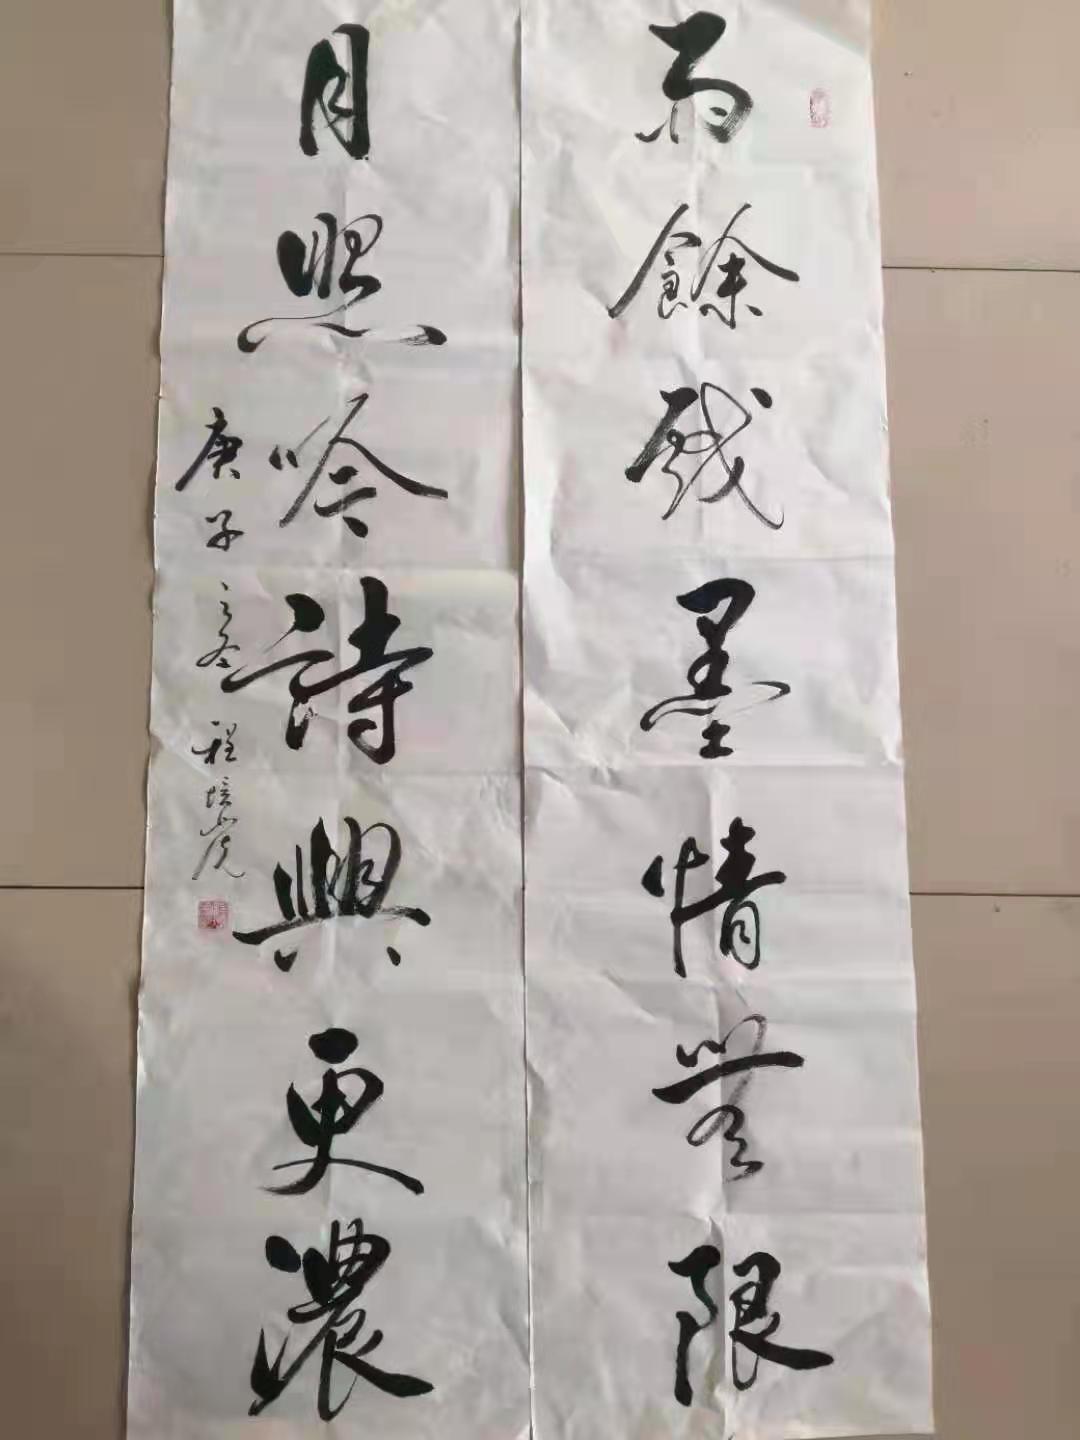 雨餘戲墨情無限
月照吟詩興更濃
庚子之冬 程培